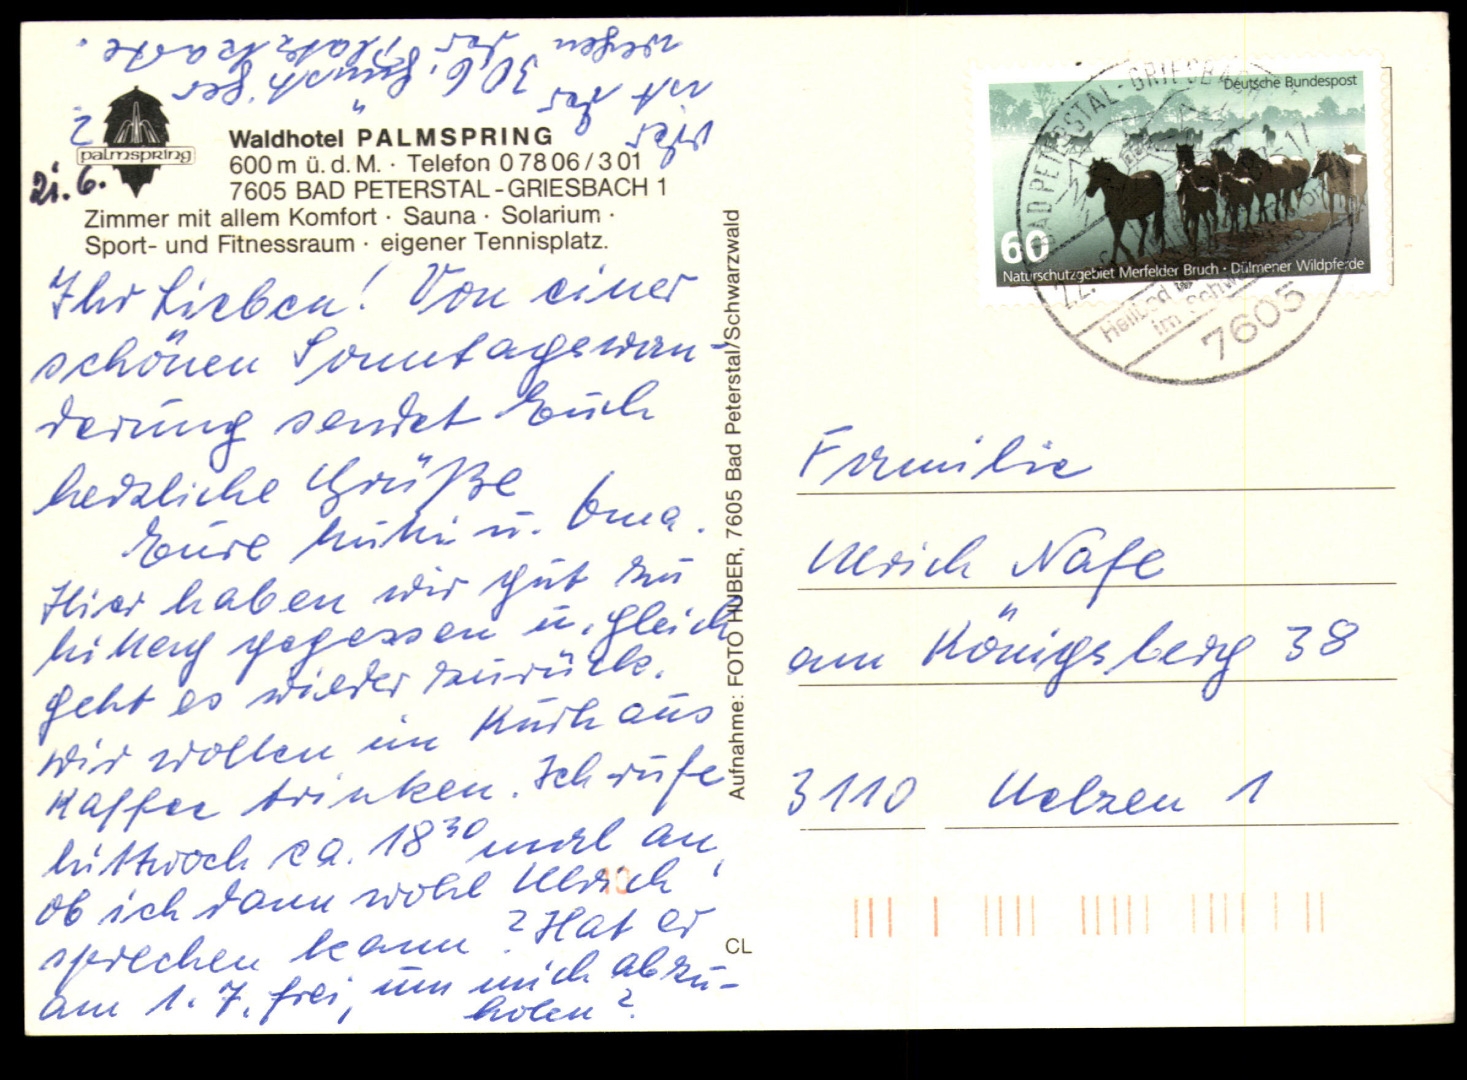 palmspring
Waldhotel PALMSPRING
600 m ü. d. M. · Telefon 0 78 06 / 3 01
7605 BAD PETERSTAL - GRIESBACH 1
Zimmer mit allem Komfort · Sauna · Solarium ·
Sport- und Fitnessraum · eigener Tennisplatz.
21.6.
Ihr Lieben! Von einer
schönen Sonntagswan-
derung sendet Euch
herzliche Grüße
Eure Mutti u. Oma.
Hier haben wir gut zu
Mittag gegessen u. gleich
geht es wieder zurück.
Wir wollen im Kurhaus
Kaffee trinken. Ich rufe
Mittwoch ca. 18 30 mal an,
ob ich dann wohl Ulrich
sprechen kann? Hat er
am 1. 7. frei, um mich abzu-
holen?
ist der 30.6.
wegen der Platzkarte.
Aufnahme: FOTO HUBER, 7605 Bad Peterstal/Schwarzwald
CL
Deutsche Bundespost
60
Naturschutzgebiet Merfelder Bruch · Dülmener Wildpferde
BAD PETERSTAL-GRIESBACH
22.
Heilbad
im Schw
7605
Familie
Ulrich Nafe
am Königsberg 38
3110 Uelzen 1